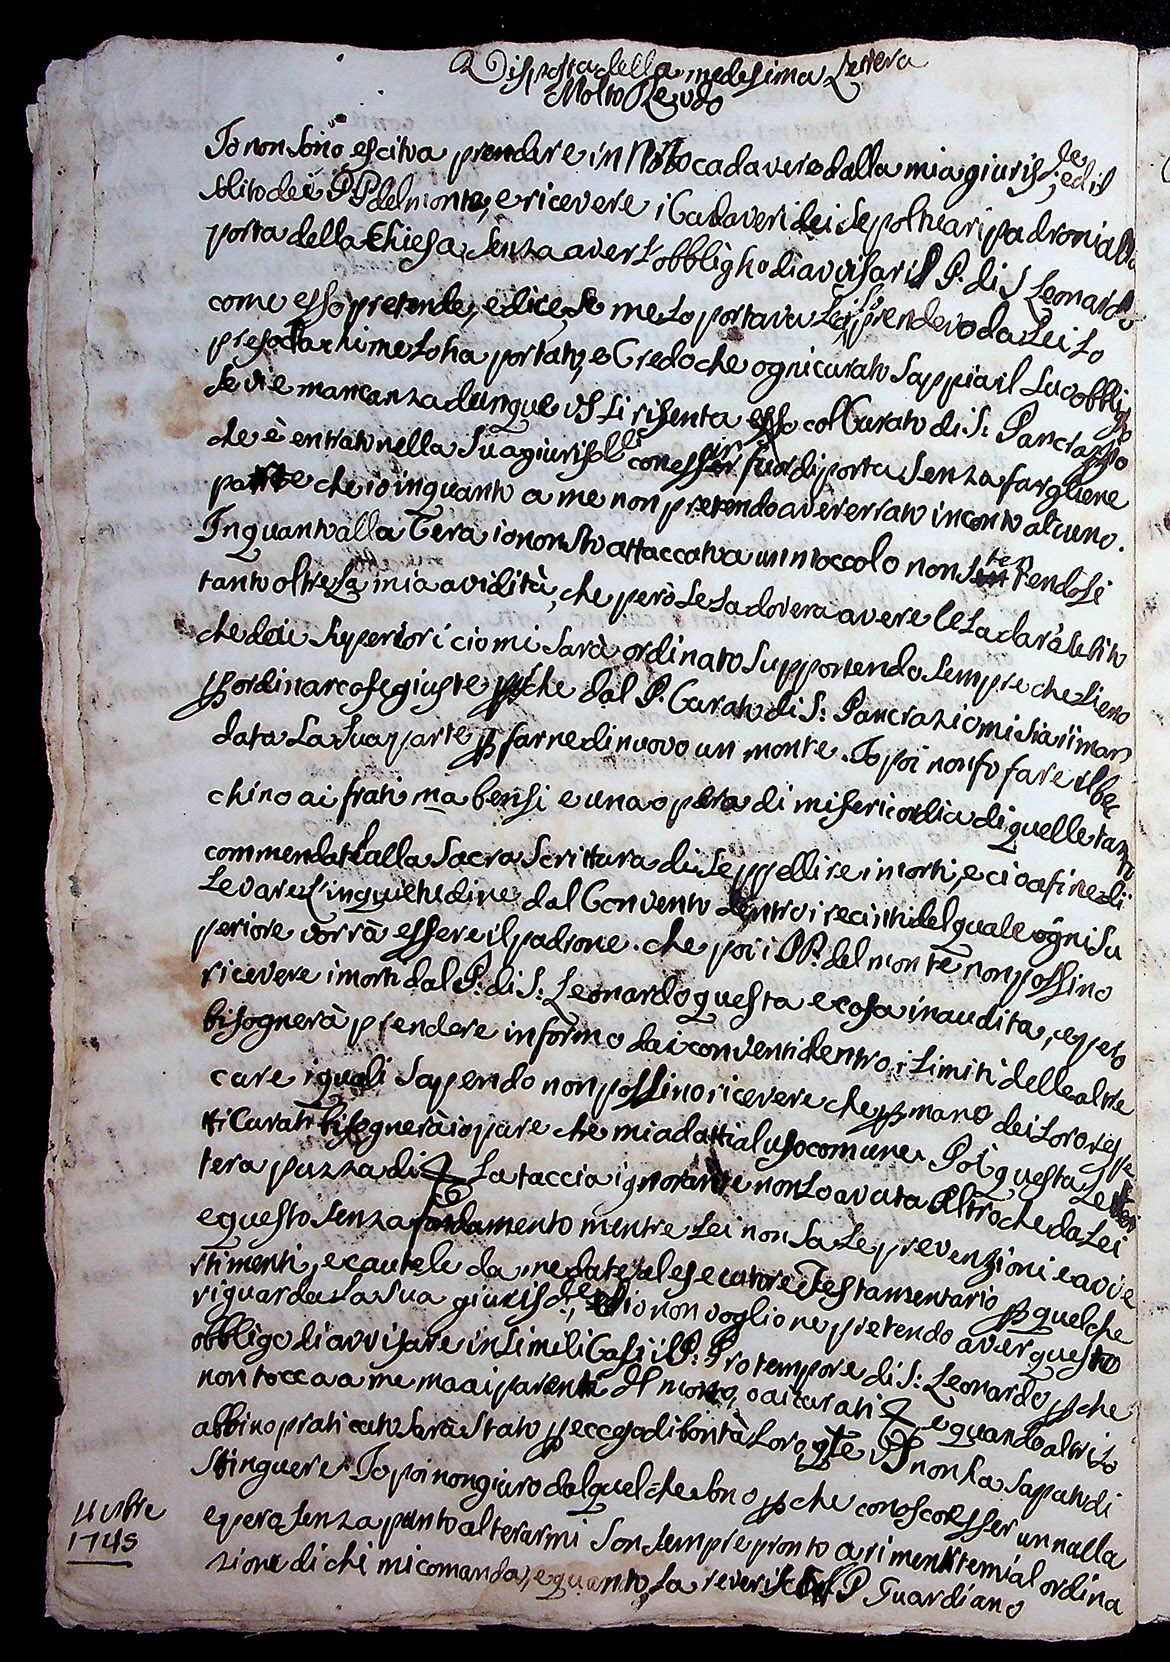 Risposta della medesima Lettera
Molto Revdo
Io non sono escito a prendere in Monte cadavero dalla mia giurisd.ne, ed il
solito dei PP. del monte, e ricevere i Cadaveri dei Sepoltuari padroni alla
porta della Chiesa, senza aver l'obbligho di avvisar il P. di S. Leonardo
come esso pretende, e dice, se me lo portava Lei, lo prendevo da Lei lo
preso da chi me lo ha portato, e Credo che ogni curato sappia il suo obbligo
se vi è mancanza dunque VS si risenta esso col Curato di S: Pancrazio
che è entrato nella sua giurisdne con esser fuor di porta senza fargliene
parte che io in quanto a me non pretendo aver errato in conto alcuno.
In quanto alla Cera io non sto attaccato a un moccolo non stendendosi
tanto oltre la mia avidità, che però se la dovera avere le la darò subito
che dai Superiori ciò mi sarà ordinato supponendo sempre che sieno
p ordinar cose giuste, pche dal P. Curato di S: Pancrazio mi sia riman
data la sua parte p farne di nuovo un monte. Io poi non fo fare il bec
chino ai frati ma bensi è una opera di misericordia di quelle tanto
commendate dalla Sacra Scrittura di seppellire i morti, e ciò a fine di
Levare l'inquietudine dal Convento dentro i recinti del quale ogni Su
periore vorrà essere il padrone. che poi i PP. del monte non possino
ricevere i morti dal P. di S: Leonardo questa è cosa inaudita, e però
bisognerà prendere informo dai conventi dentro i Limiti delle altre
cure i quali sapendo non possino ricevere che p mano dei loro rispe
tti Curati bisognerà io pure che mi adatti al uso comune. Poi questa Let
tera puzza di & La taccia ignorante non lo avuta altro che da Lei
e questo senza fondamento mentre Lei non sa le prevenzioni e avve
rtimenti, e cautele da me date al esecutore Testamentario p quel che
riguarda la sua giurisdne, io non voglio ne pretendo aver questo
obbligo di avvisare in simili Casi il P: Pro tempore di S: Leonardo pche
non tocca a me ma ai parenti del morto, o ai curati & e quando altri lo
abbino praticato sarà stato p eccesso di bontà loro qle VS non ha saputo di
stinguere. Io poi non giuro dal quel che sono pche conosco esser un nulla
e però senza punto alterarmi son sempre pronto a rimettermi al ordina
zione di chi mi comanda, e quanto, La reverisco il P Guardiano
4 8bre
1745